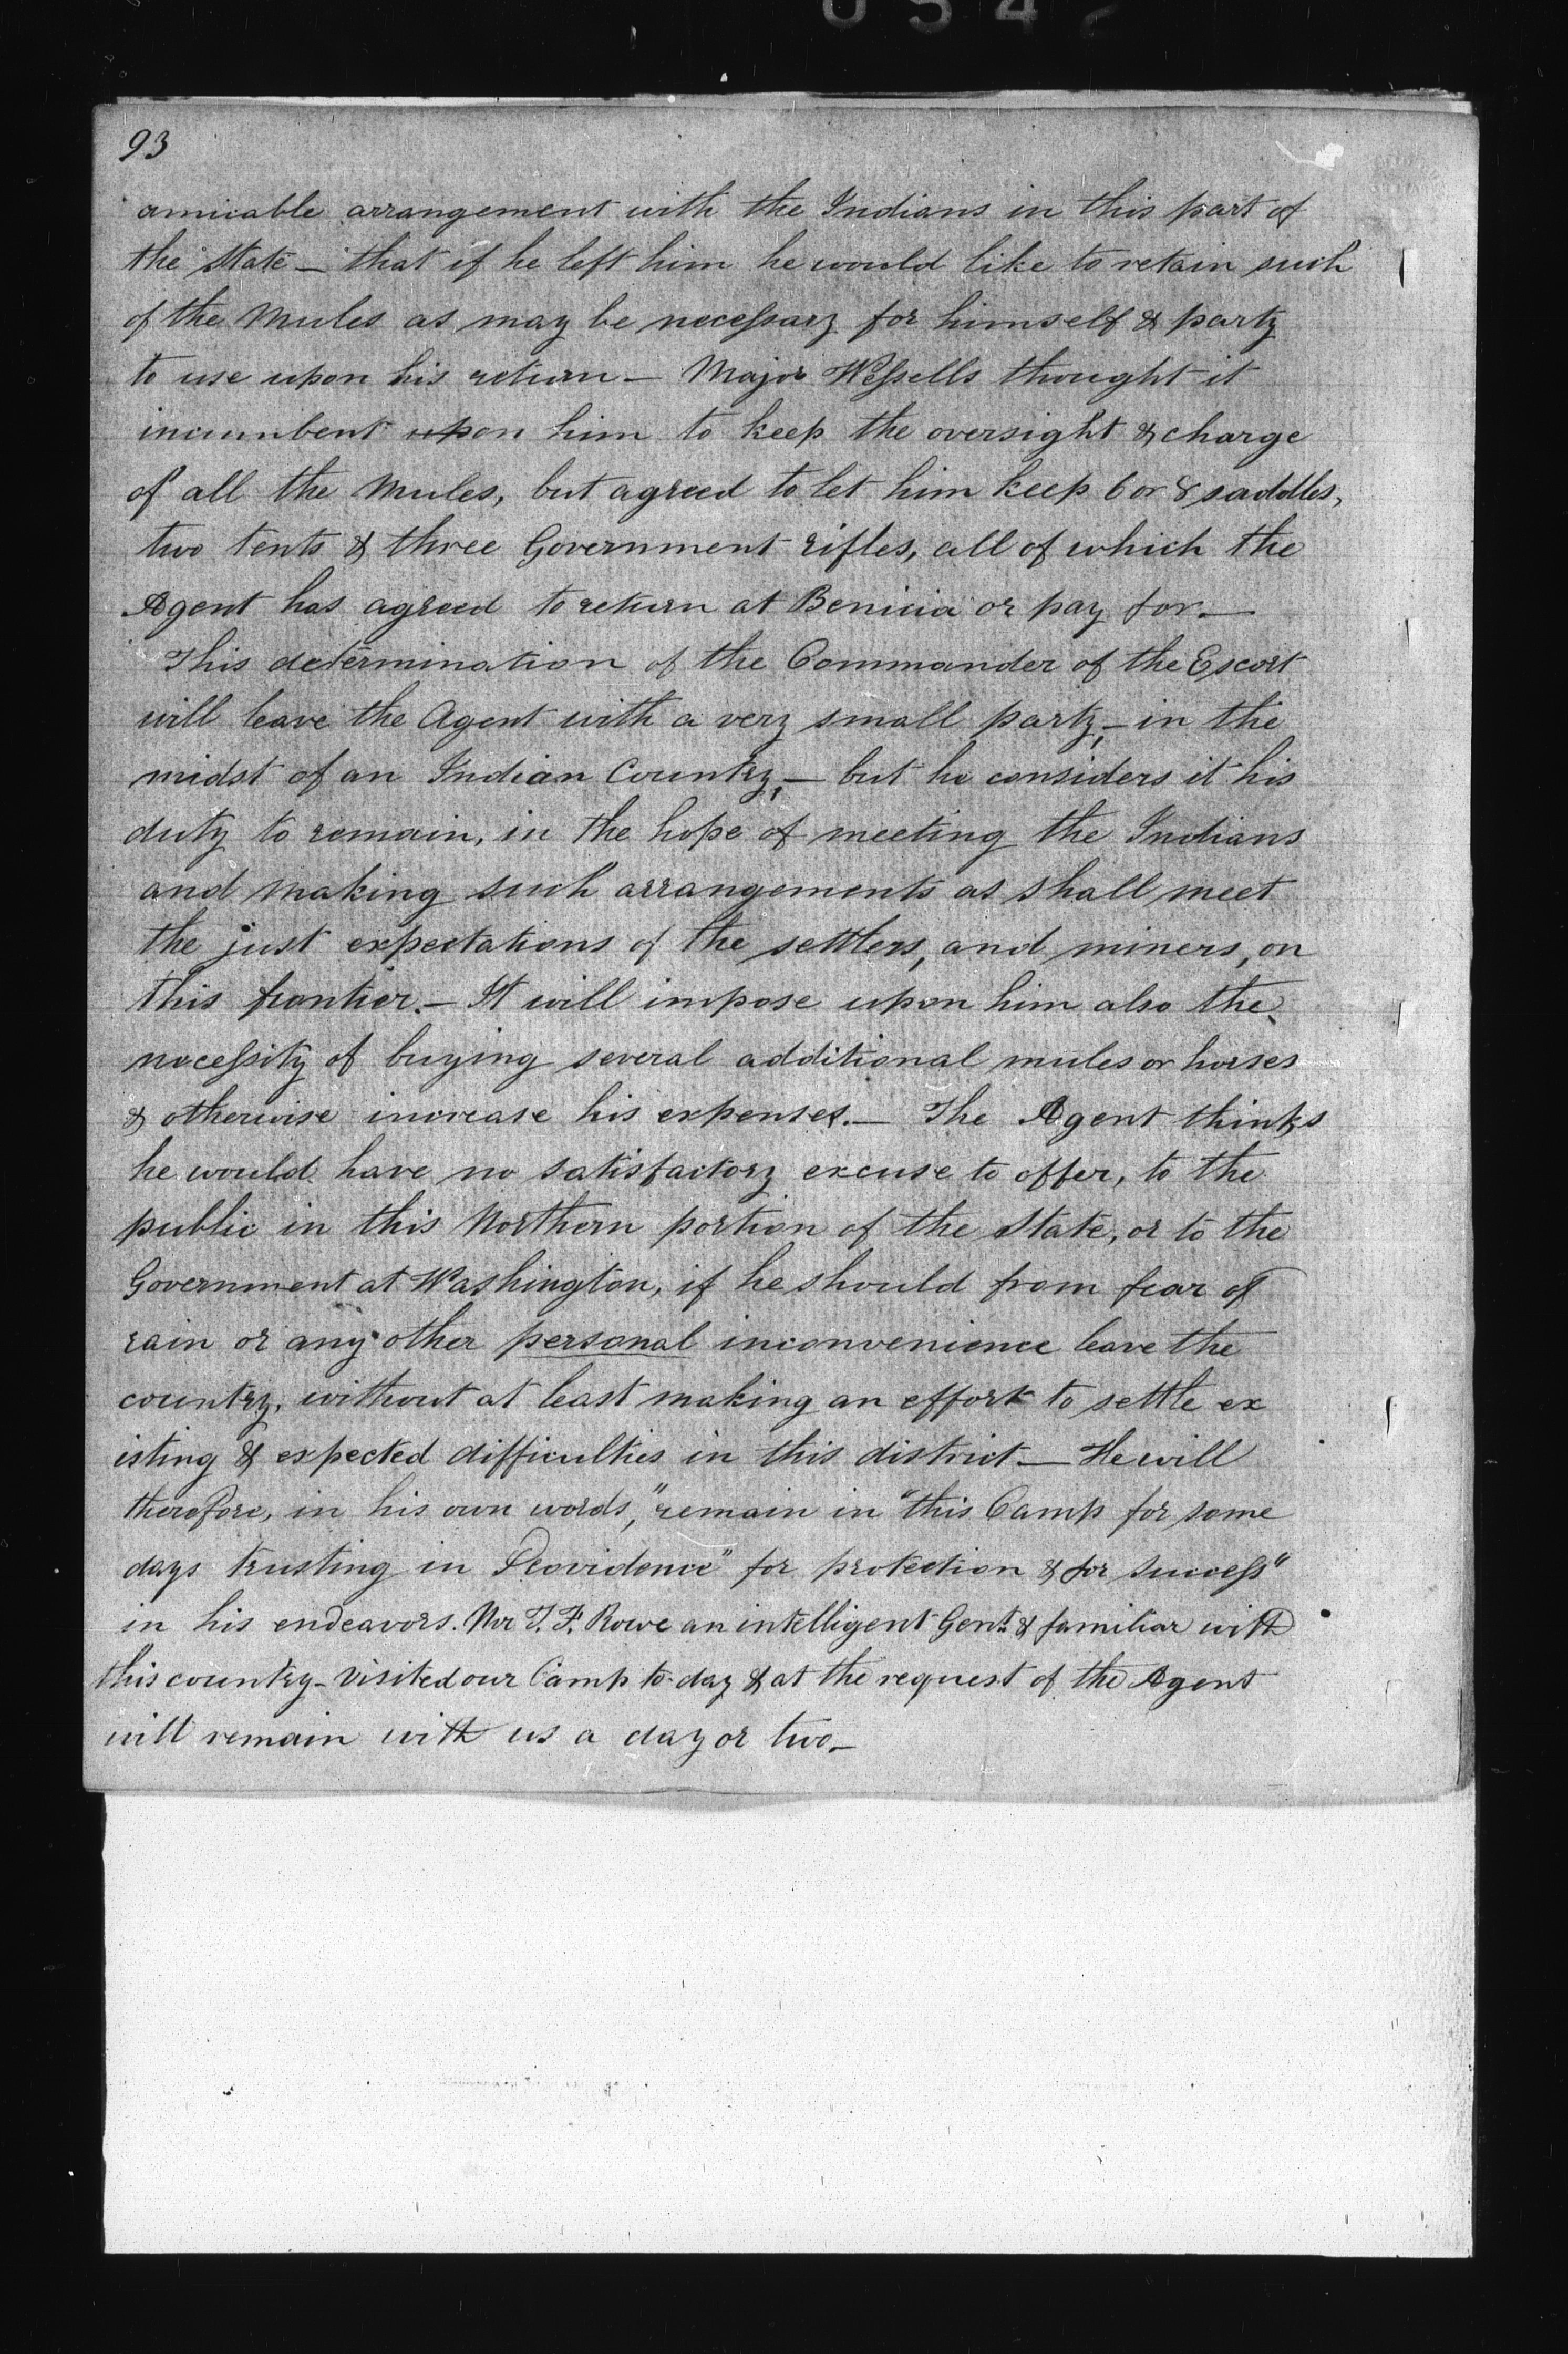 0542
93
amicable arrangement with the Indians in this part of
the State — that if he left him he would like to retain such
of the Mules as may be necessary for himself & party
to use upon his return — Major Wessells thought it
incumbent upon him to keep the oversight & charge
of all the Mules, but agreed to let him keep 6 or 8 saddles,
two tents & three Government rifles, all of which the
Agent has agreed to return at Benicia or pay for. —
This determination of the Commander of the Escort
will leave the Agent with a very small party, — in the
midst of an Indian Country, — but he considers it his
duty to remain, in the hope of meeting the Indians
and making such arrangements as shall meet
the just expectations of the settlers, and miners, on
this frontier. — It will impose upon him also the
necessity of buying several additional mules or horses
& otherwise increase his expenses. — The Agent thinks
he would have no satisfactory excuse to offer, to the
public in this Northern portion of the State, or to the
Government at Washington, if he should from fear of
rain or any other personal inconvenience leave the
country, without at least making an effort to settle ex
isting & expected difficulties in this district — He will
therefore, in his own words, "remain in "this Camp for some
days trusting in Providence" for protection & for success"
in his endeavors. Mr T. F. Rowe an intelligent Gent. & familiar with
this country — visited our Camp to-day & at the request of the Agent
will remain with us a day or two —